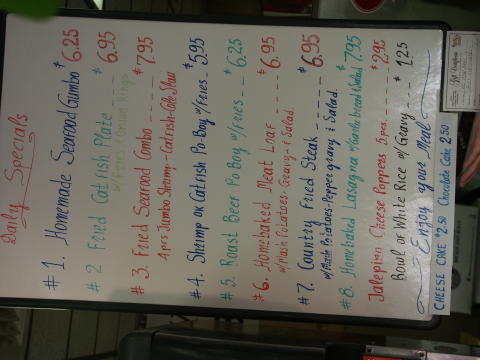 Daily Specials
#1. Homemade Seafood Gumbo $6.25
#2 Fried Catfish Plate --- $6.95
w/Fries & Onion Rings
#3. Fried Seafood Combo ---- $7.95
4pcs Jumbo Shrimp - Catfish - Cole Slaw
#4. Shrimp or Catfish Po-Boy w/Fries _ $5.95
#5. Roast Beef Po Boy w/Fries -- $6.25
#6. Homebaked Meat Loaf ----- $6.95
w/Mash Potatoes - Gravy - & Salad.
#7. Country Fried Steak ----- $6.95
w/Mash Potatoes - Pepper gravy & Salad.
#8. Homebaked Lasagna w/Garlic bread & Salad $7.95
Jalepino Cheese Poppers 5 pcs ---- $2.95
Bowl of White Rice w/ Gravy --- $1.25
Enjoy your Meal
CHEESE CAKE $2.50 Chocolate Cake 2.50